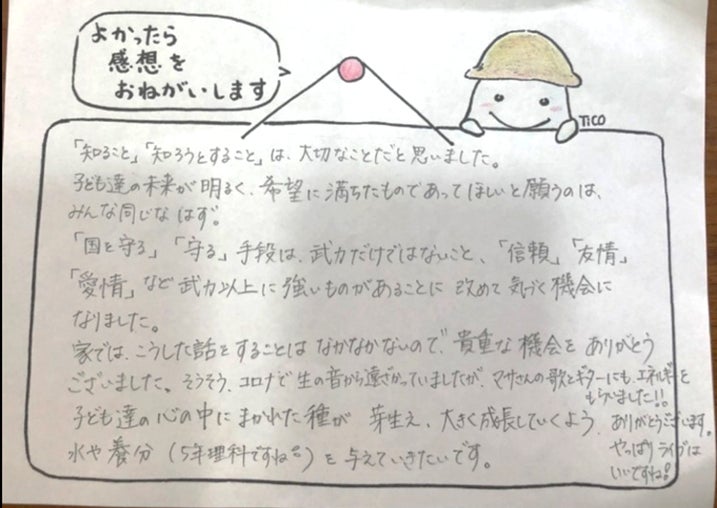 よかったら
感想を
おねがいします
TICO
「知ること」「知ろうとすること」は、大切なことだと思いました。
子ども達の未来が明るく、希望に満ちたものであってほしいと願うのは、
みんな同じなはず。
「国を守る」「守る」手段は、武力だけではないこと、「信頼」「友情」
「愛情」など武力以上に強いものがあることに改めて気づく機会に
なりました。
家では、こうした話をすることはなかなかないので、貴重な機会をありがとう
ございました。そうそう、コロナで生の音から遠ざかっていましたが、マサさんの歌とギターにも、エネルギーを
もらいました!!
子ども達の心の中にまかれた種が芽生え、大きく成長していくよう、
水や養分(5年理科ですね。)を与えていきたいです。
ありがとうございます。
やっぱりライブは
いいですね!